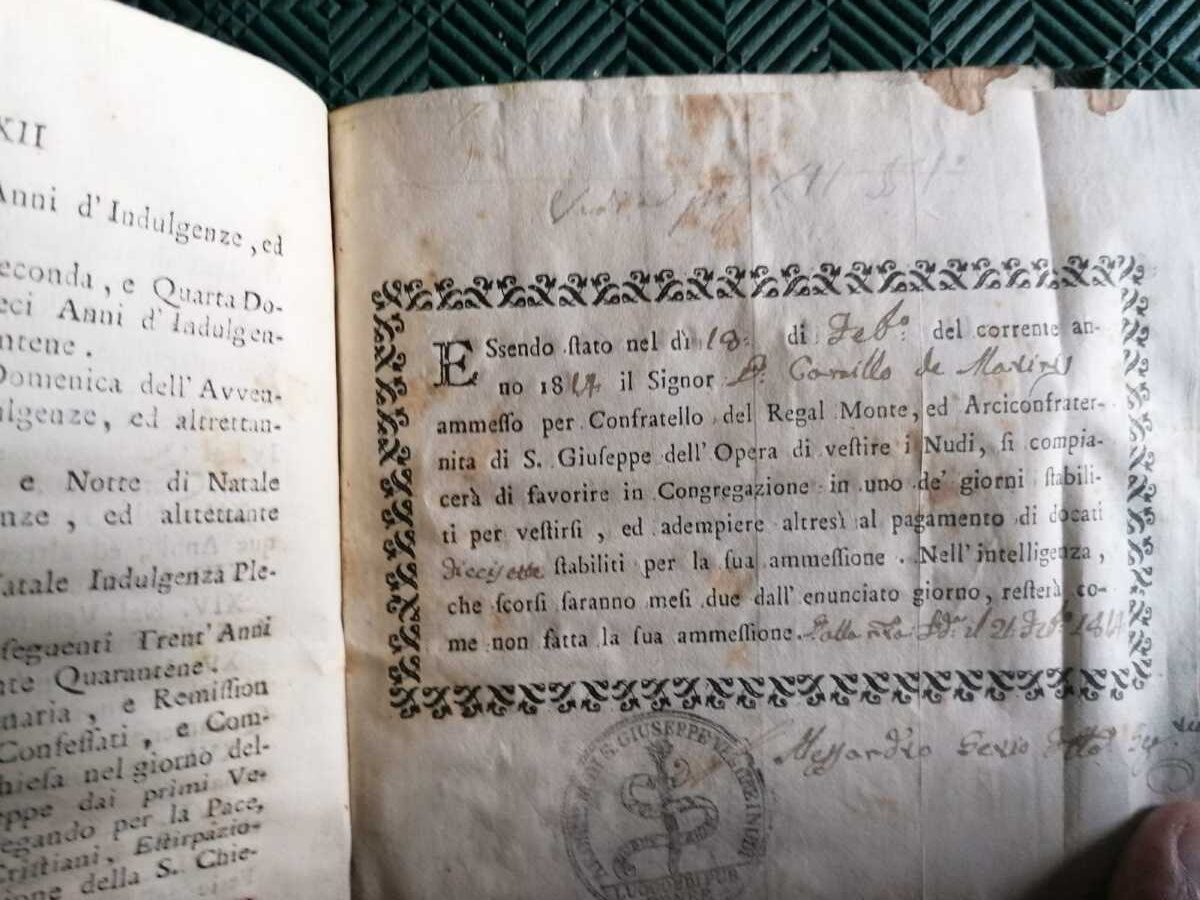 XII
Anni d'Indulgenze, ed
econda, e Quarta Do-
eci Anni d'Indulgen-
ntene.
Domenica dell'Avven-
ulgenze, ed altrettan-
e Notte di Natale
nze, ed alttettante
Natale Indulgenza Ple-
ſeguenti Trent'Anni
nte Quarantene.
naria, e Remiſſion
Confeſſati, e Com-
hieſa nel giorno del-
eppe dai primi Ve-
egando per la Pace,
Criſtiani, Eſtirpazio-
ione della S. Chie-
ESſendo ſtato nel dì 18. di Feb.º del corrente an-
no 1814 il Signor D. Camillo de Martinis
ammeſſo per Confratello del Regal Monte, ed Arciconfrater-
nita di S. Giuſeppe dell'Opera di veſtire i Nudi, ſi compia-
cerà di favorire in Congregazione in uno de' giorni ſtabili-
ti per veſtirſi, ed adempiere altresì al pagamento di docati
diecisette ſtabiliti per la ſua ammeſſione. Nell'intelligenza,
che ſcorſi ſaranno meſi due dall'enunciato giorno, reſterà co-
me non fatta la ſua ammeſſione.
Aleſſandro
DI S. GIUSEPPE